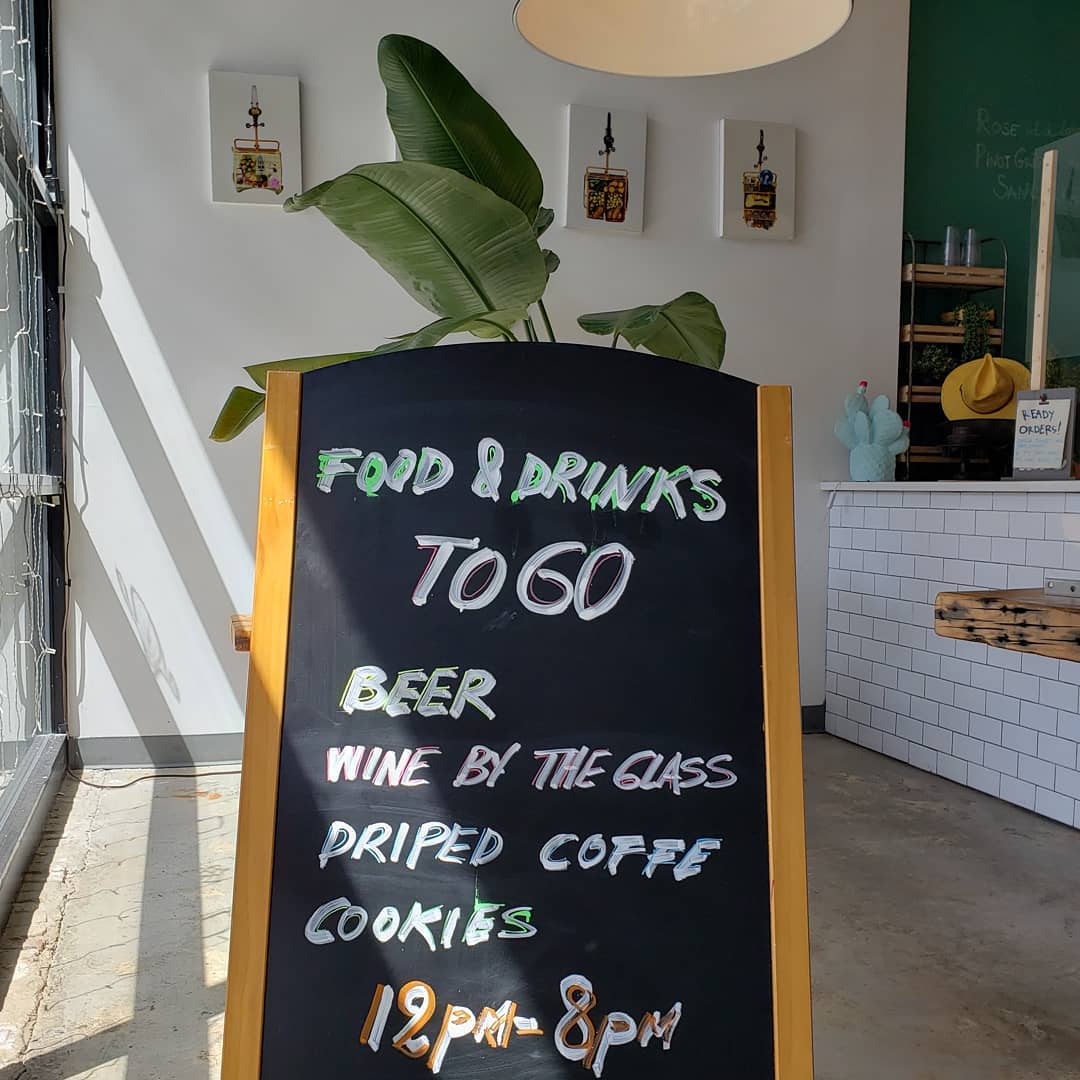 FOOD & DRINKS
TO GO
BEER
WINE BY THE GLASS
DRIPED COFFE
COOKIES
12PM-8PM
ROSE
PINOT
READY
ORDERS!